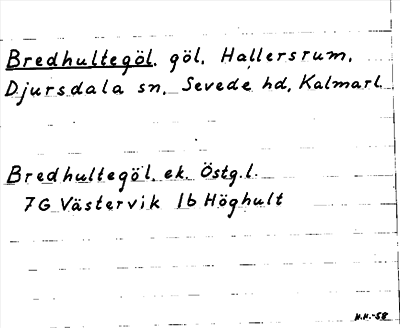 Bredhultegöl, göl, Hallersrum,
Djursdala sn, Sevede hd, Kalmarl.
Bredhultegöl, ek. Östg.l.
7G Västervik 1b Höghult
H.H.-58